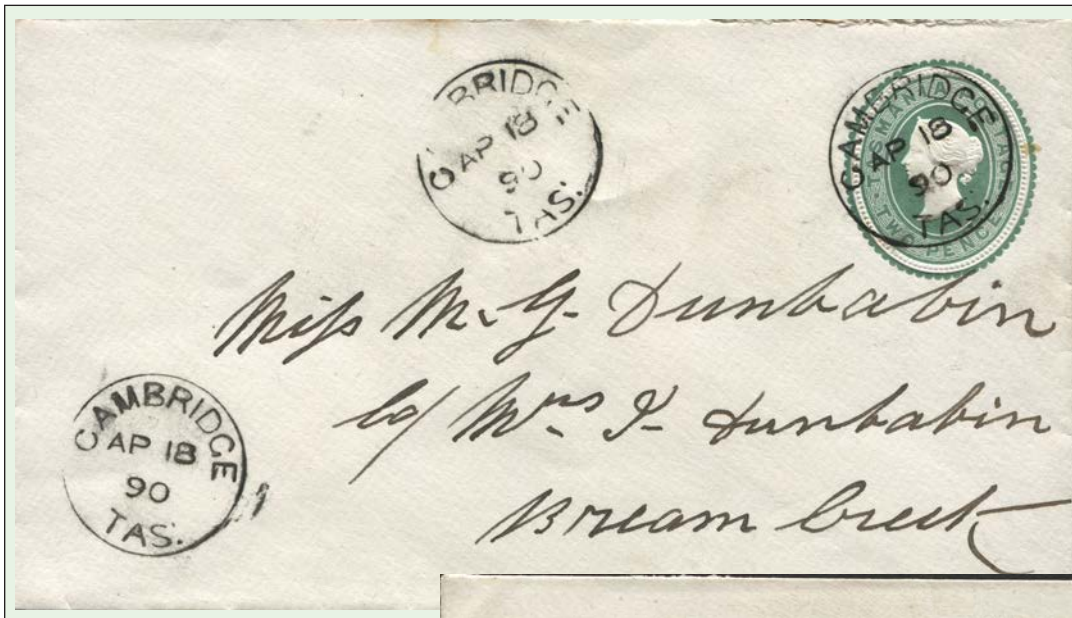 CAMBRIDGE
AP 18
90
TAS.
CAMBRIDGE
AP 18
90
TAS.
TASMANIA POSTAGE
TWO PENCE
Miss M. G. Dunbabin
c/ Mrs T. Dunbabin
Bream Creek
CAMBRIDGE
AP 18
90
TAS.